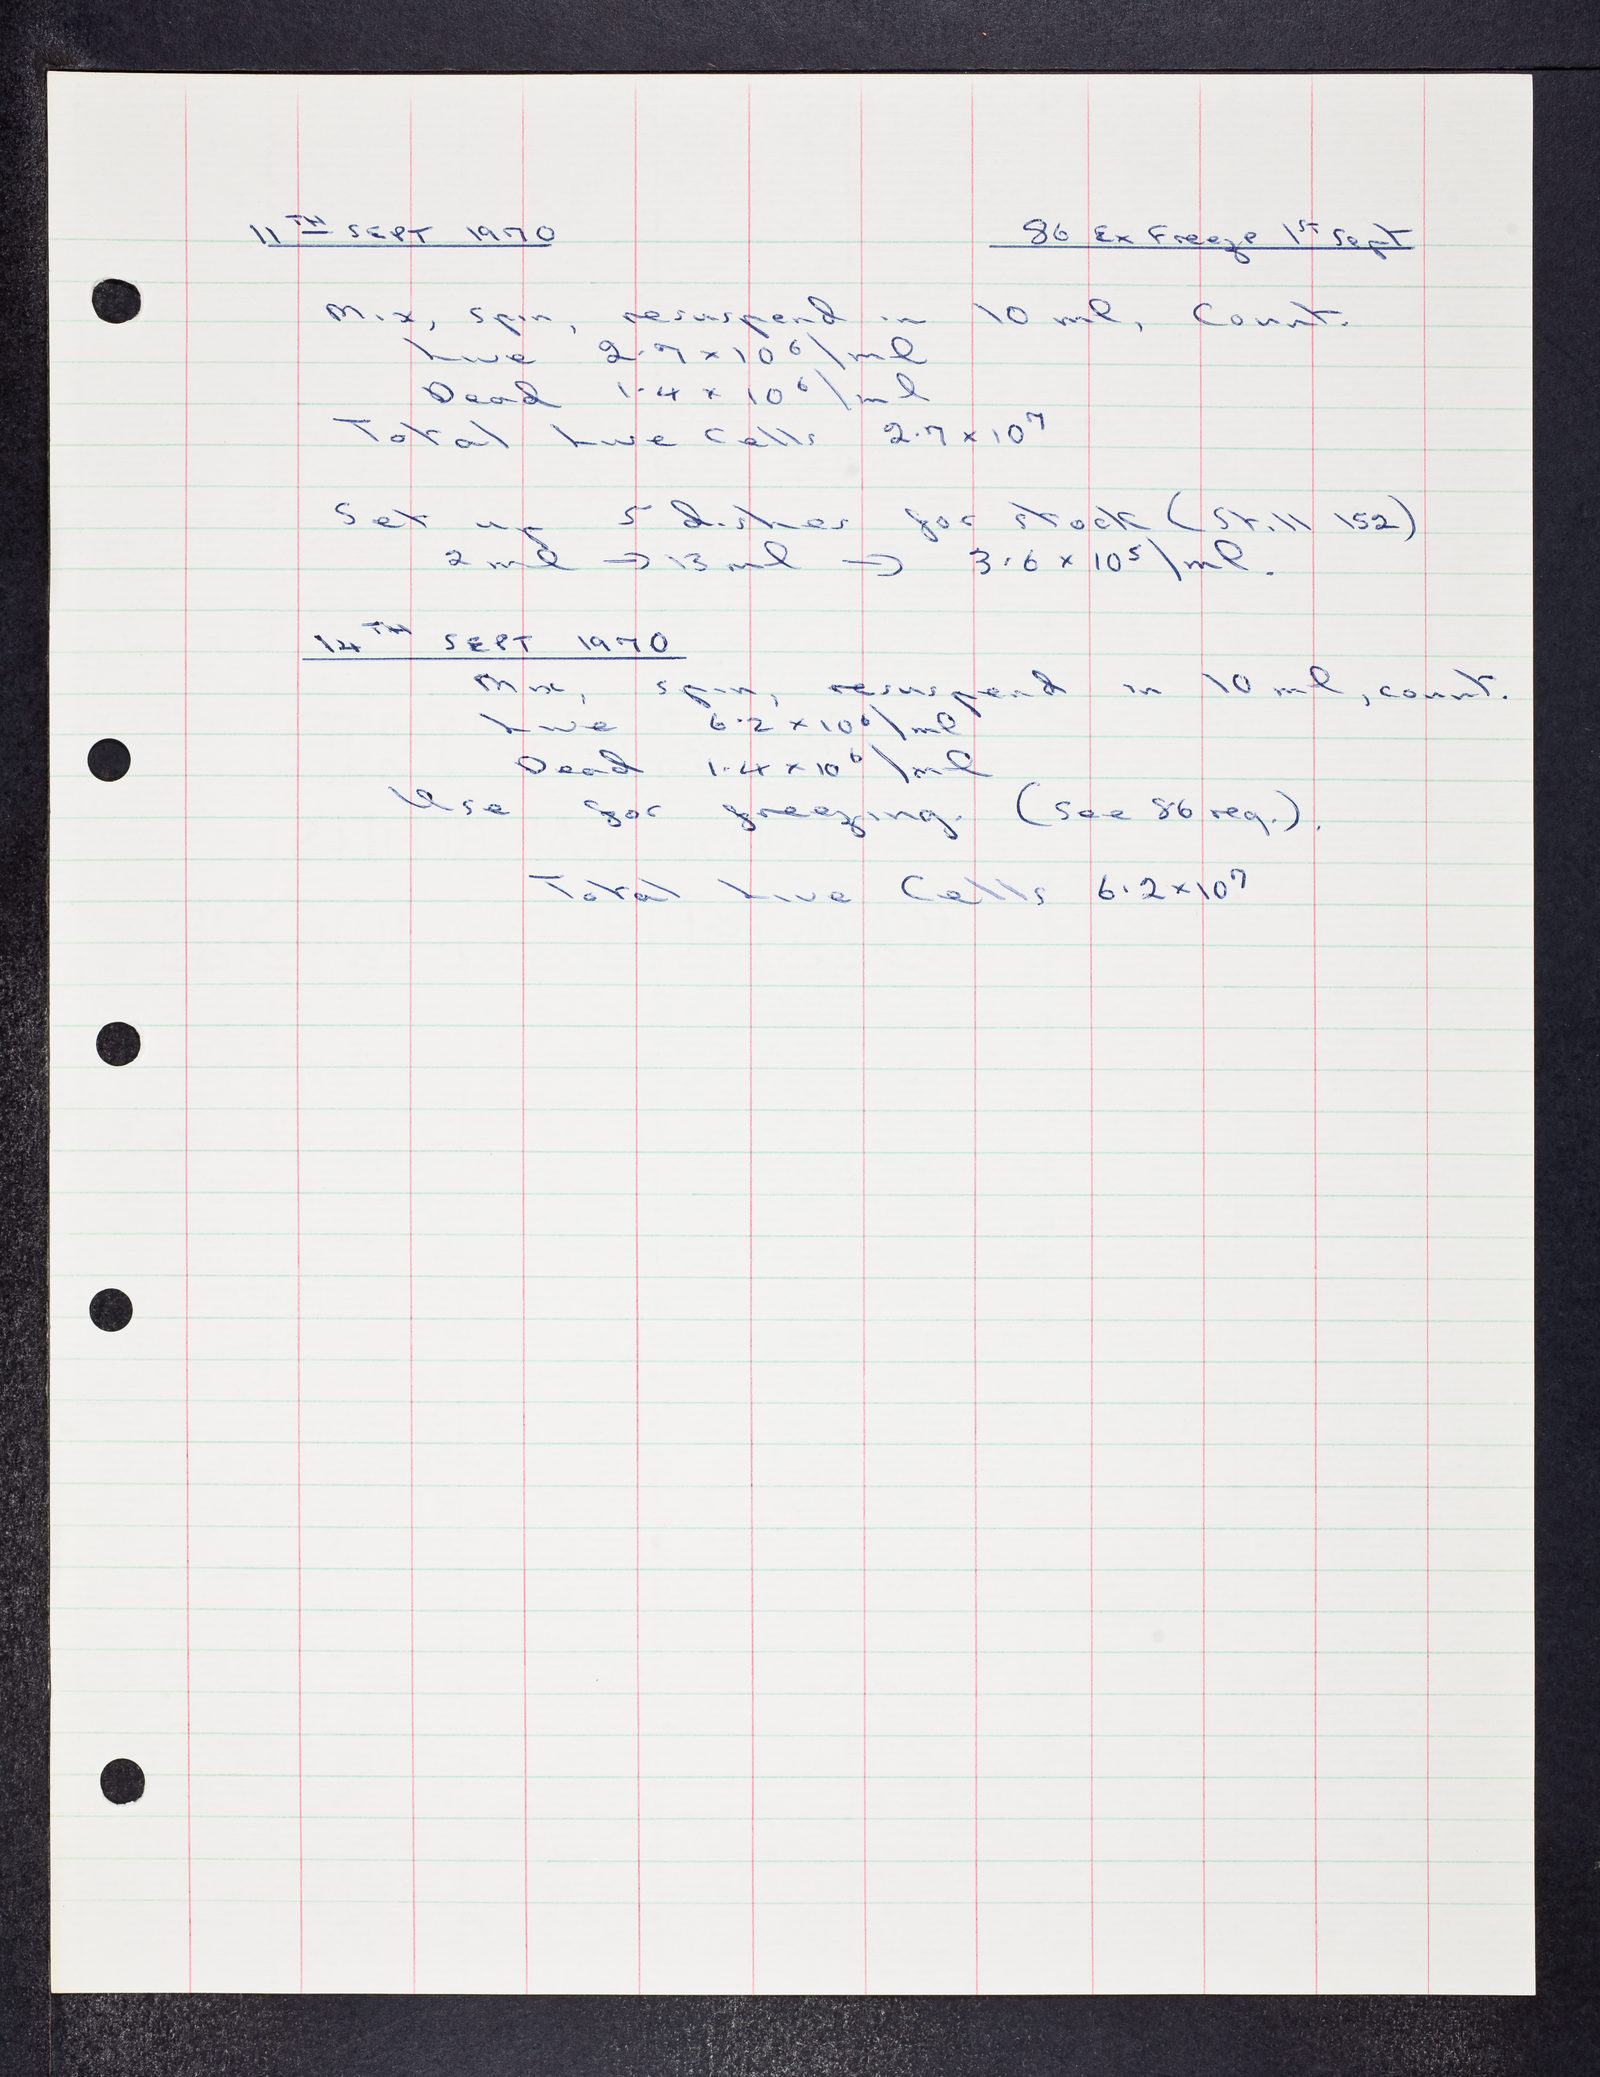 11TH SEPT 1970 86 Ex Freeze 1ST Sept
Mix, spin, resuspend in 10 ml, Count.
Live 2.7 x 10⁶/ml
Dead 1.4 x 10⁶/ml
Total Live Cells 2.7 x 10⁷
Set up 5 dishes for stock (Still 152)
2 ml → 13 ml → 3.6 x 10⁵/ml.
14TH SEPT 1970
Mix, spin, resuspend in 10 ml, count.
Live 6.2 x 10⁶/ml
Dead 1.4 x 10⁶/ml
Use for freezing. (See 86 reg.).
Total Live Cells 6.2 x 10⁷